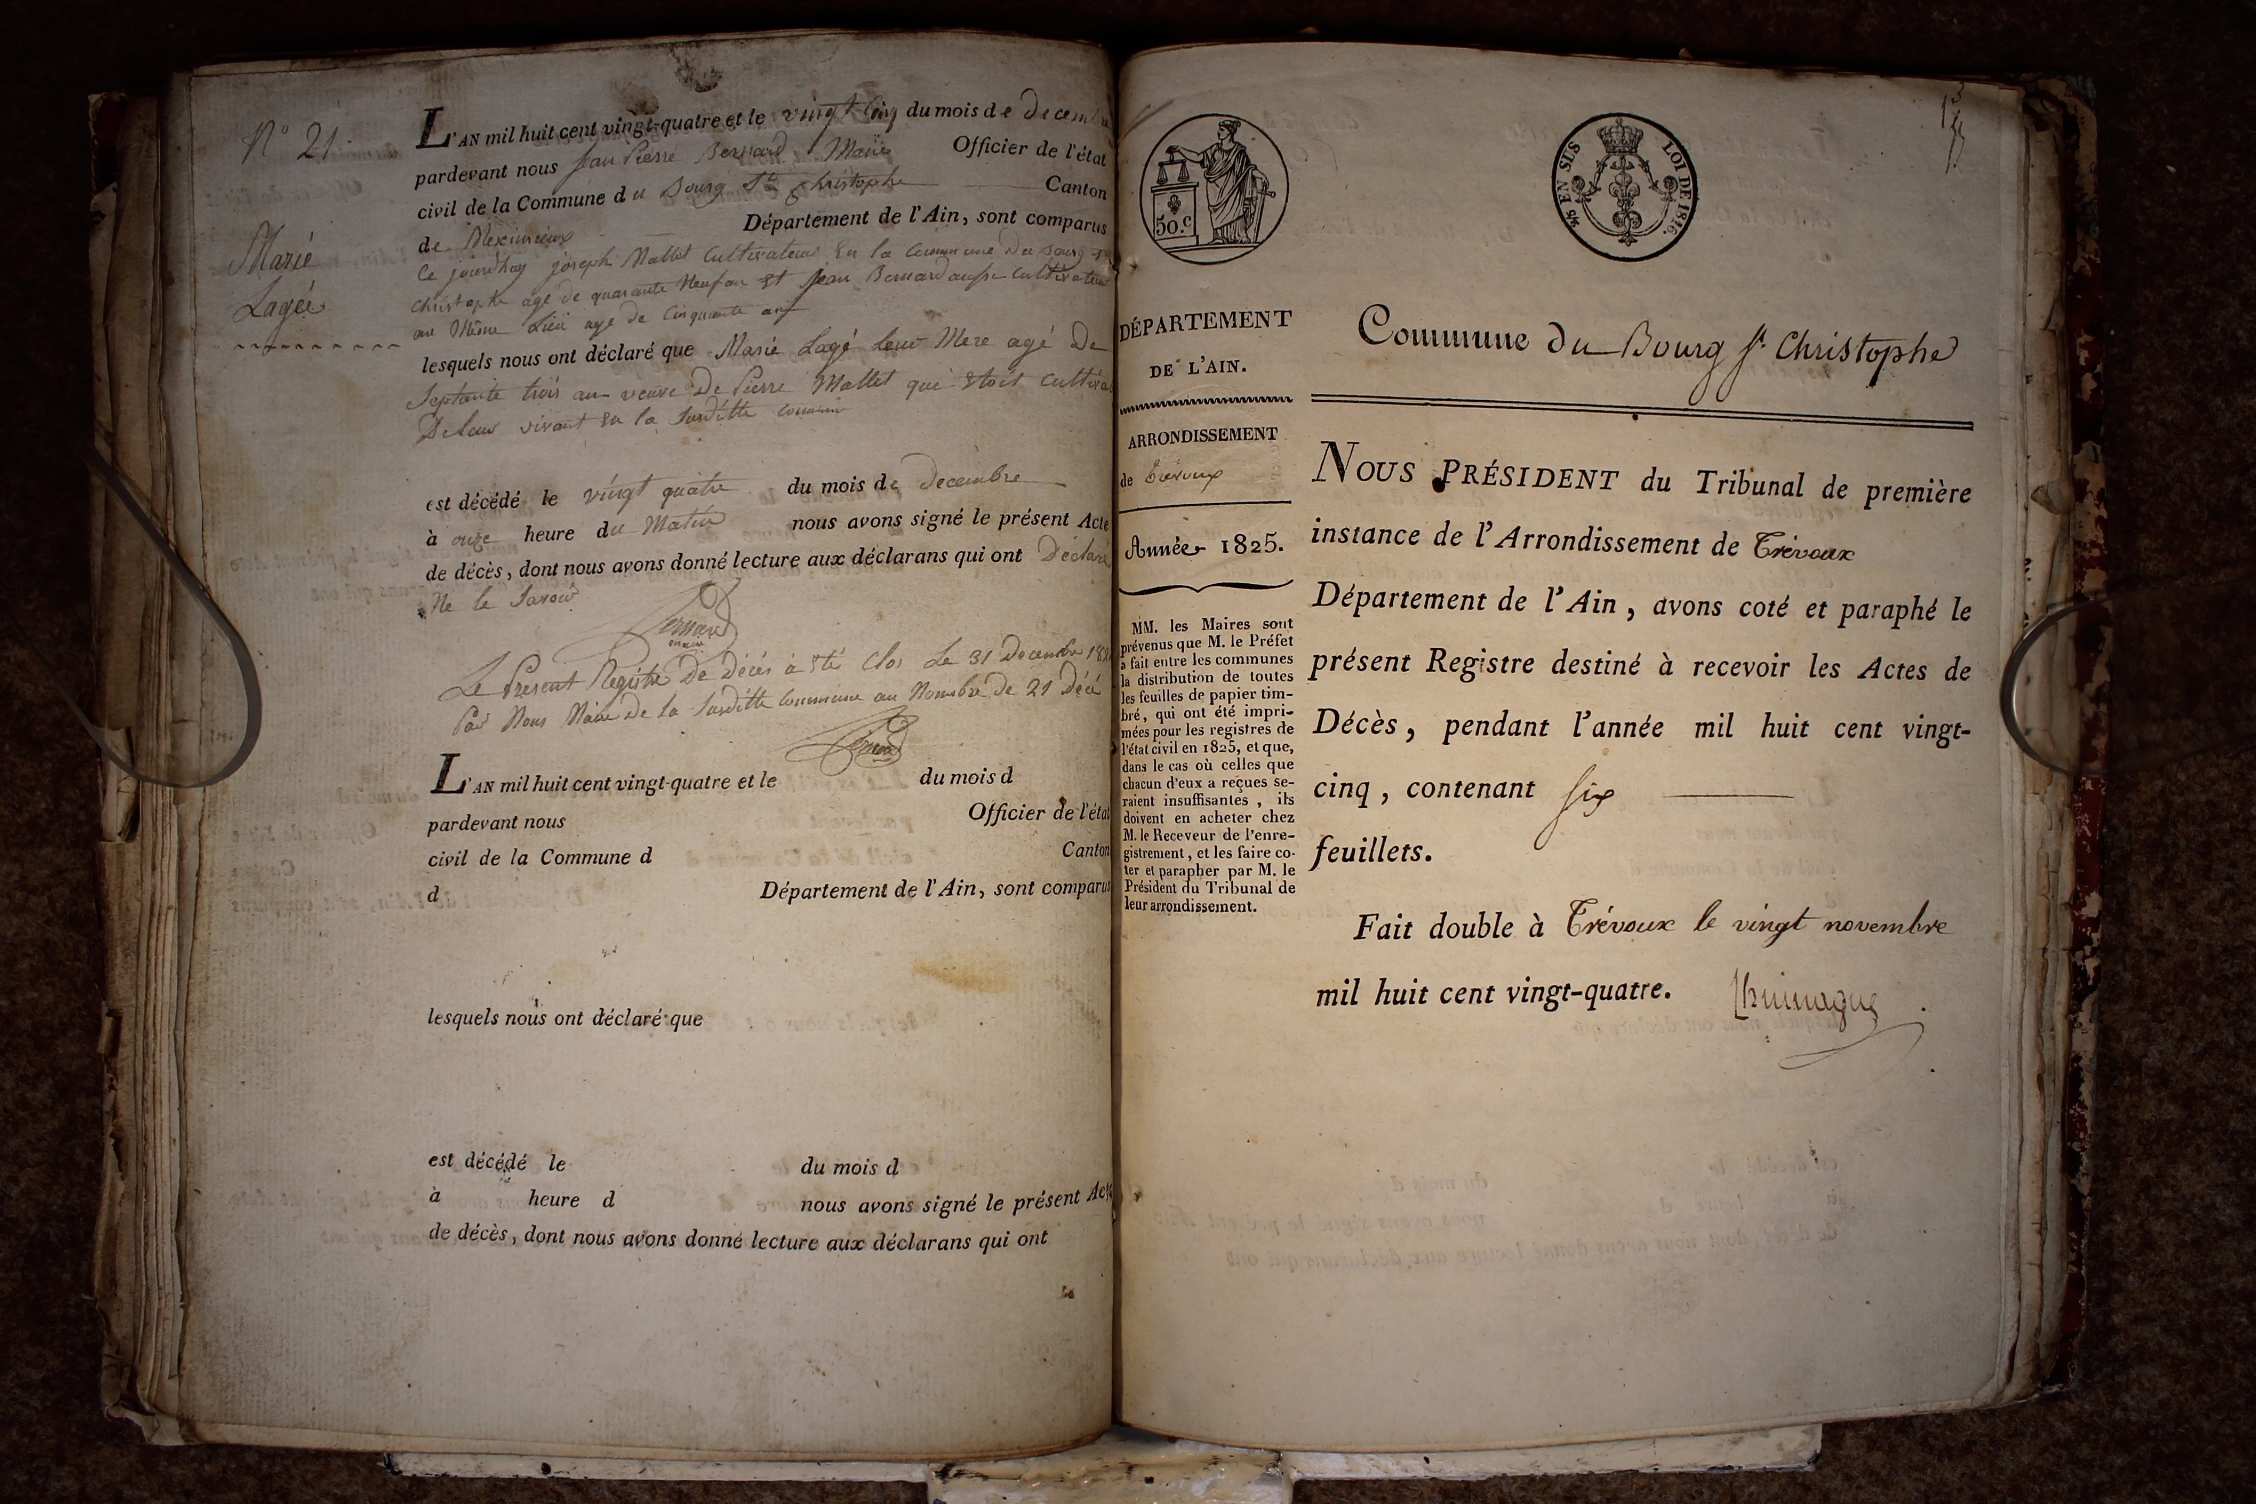 N° 21.
Marie
Lagée
L'AN mil huit cent vingt-quatre et le vingt Cinq du mois de decembre
pardevant nous jean Pierre Bernard Maire Officier de l'état
civil de la Commune du Bourg St Christophe Canton
de Meximieux Département de l'Ain, sont comparus
Ce jourd'huy joseph Mallet Cultivateur En la Commune Du Bourg St
Christophe age de quarante Neuf an Et jean Bernard aussi cultivateur
au Même Lieu age de Cinquante ans
lesquels nous ont déclaré que Marie Lagé leur Mere agé De
Septante trois an veuve De Pierre Mallet qui Etoit Cultiva
De leur vivant En la Surditte commune
est décédé le vingt quatre du mois de decembre
à onze heure du Matin nous avons signé le présent Acte
de décès, dont nous avons donné lecture aux déclarans qui ont Déclaré
Ne le Savoir
Bernard
maire
Le Present Registre De Décés à Eté Clos Le 31 Decembre 182
Par Nous Maire De La Surditte Commune au Nombre De 21 Décé
Bernard
L'AN mil huit cent vingt-quatre et le du mois d
pardevant nous Officier de l'état
civil de la Commune d Canton
d Département de l'Ain, sont comparus
lesquels nous ont déclaré que
est décédé le du mois d
à heure d nous avons signé le présent Acte
de décès, dont nous avons donné lecture aux déclarans qui ont
50.c
EN SUS
LOI DE 1816.
DÉPARTEMENT
DE L'AIN.
ARRONDISSEMENT
de Trévoux
Année 1825.
MM. les Maires sont
prévenus que M. le Préfet
a fait entre les communes
la distribution de toutes
les feuilles de papier tim-
bré, qui ont été impri-
mées pour les registres de
l'état civil en 1825, et que,
dans le cas où celles que
chacun d'eux a reçues se-
raient insuffisantes, ils
doivent en acheter chez
M. le Receveur de l'enre-
gistrement, et les faire co-
ter et parapher par M. le
Président du Tribunal de
leur arrondissement.
Commune du Bourg St Christophe
NOUS PRÉSIDENT du Tribunal de première
instance de l'Arrondissement de Trévoux
Département de l'Ain, avons coté et paraphé le
présent Registre destiné à recevoir les Actes de
Décès, pendant l'année mil huit cent vingt-
cinq, contenant six
feuillets.
Fait double à Trévoux le vingt novembre
mil huit cent vingt-quatre.